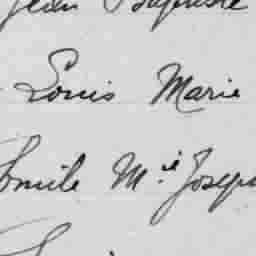 Jean Baptiste
Louis Marie
Emile M.ie Joseph